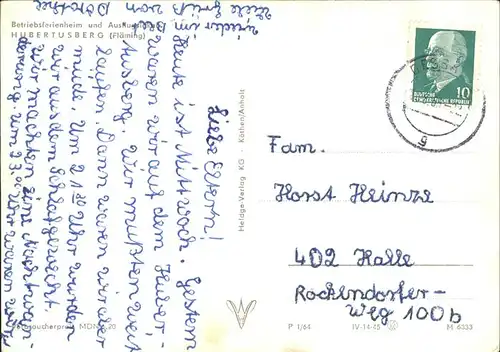 Betriebsferienheim und Ausflugs
HUBERTUSBERG (Fläming)
Liebe Eltern!
Heute ist Mittwoch. Gestern
waren wir auf dem Huber-
tusberg. Wir mußten weit
laufen. Dann waren wir aber
müde. Um 21 30 Uhr wurden
wir aus dem Schlaf geweckt.
Wir machten eine Nachtwan-
derung. Um 23.00 Uhr waren wir
wieder im
Viele Grüße von Dorothee
Heldge-Verlag KG · Köthen/Anhalt
DEUTSCHE
DEMOKRATISCHE REPUBLIK
10
g
Fam.
Horst Heinze
402 Halle
Rockendorfer-
Weg 100b
Verbraucherpreis MDN 0,20
P 1/64 IV-14-45 M 6333